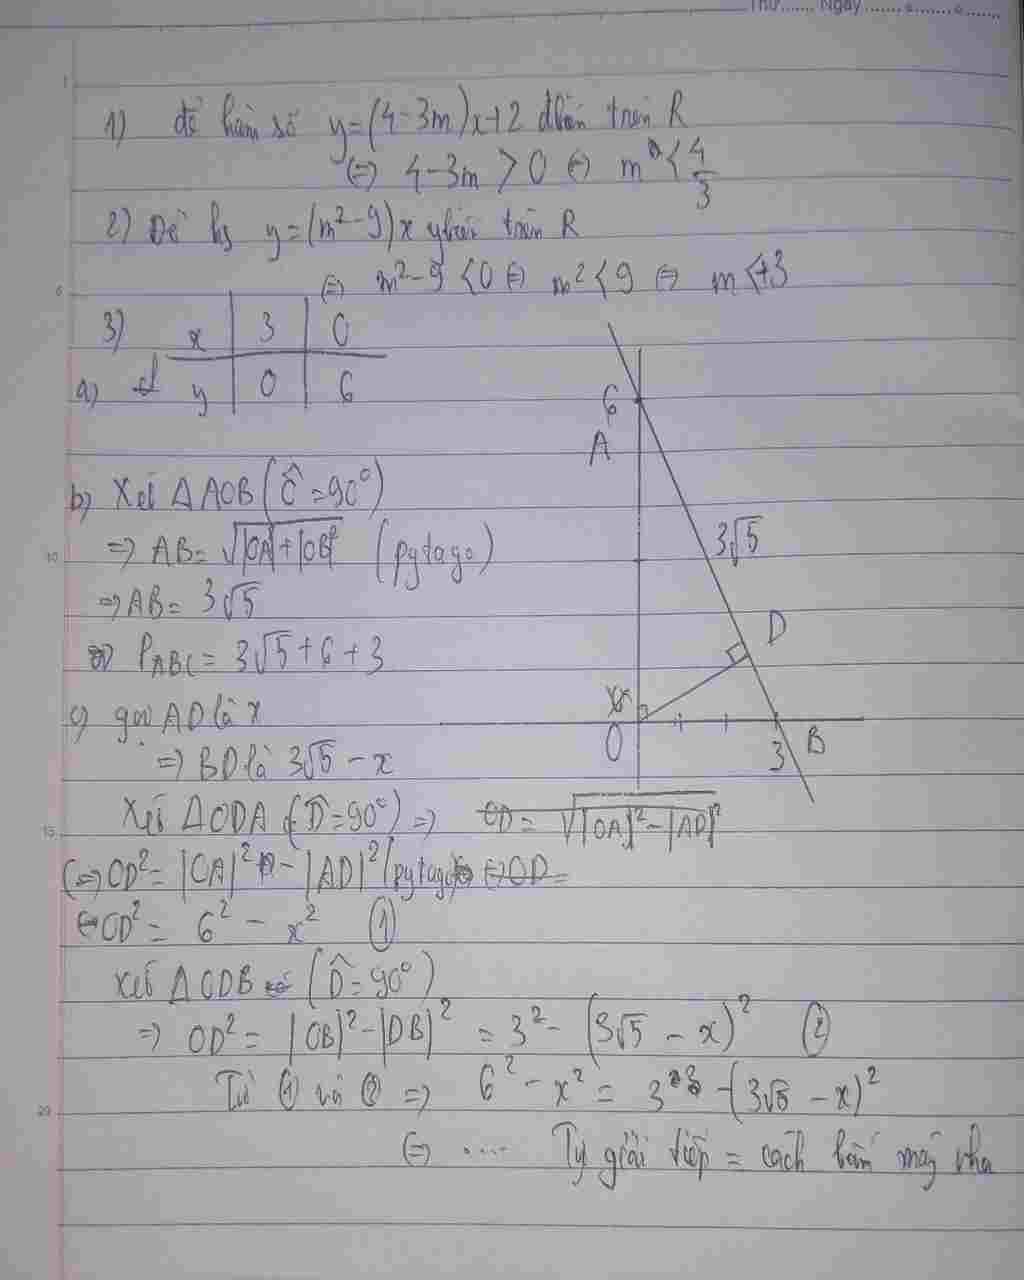 Thứ....... Ngày...............
1) để hàm số y=(4-3m)x+2 đbiến trên R
⇔ 4-3m > 0 ⇔ m < 4/3
2) Để hs y=(m²-9)x ybiến trên R
⇔ m²-9 < 0 ⇔ m² < 9 ⇔ m < ±3
3) x | 3 | 0
a) d y | 0 | 6
b) Xét ΔAOB (Ô=90°)
⇒ AB= √|OA|²+|OB|² (pytago)
⇒ AB= 3√5
P ABC = 3√5+6+3
c) gọi AD là x
⇒ BD là 3√5 - x
Xét ΔODA (D̂=90°) ⇒ OD= √|OA|²-|AD|²
⇔ OD² = |OA|² - |AD|² (pytago) ⇔ OD=
⇔ OD² = 6² - x² ①
Xét ΔODB (D̂=90°)
⇒ OD² = |OB|²-|DB|² = 3² - (3√5 - x)² ②
Từ ① và ② ⇒ 6² - x² = 3² - (3√5 - x)²
⇔ .... Tự giải tiếp = cách bấm máy nha
6
A
3√5
D
O
3
B
1
6
10
15
20